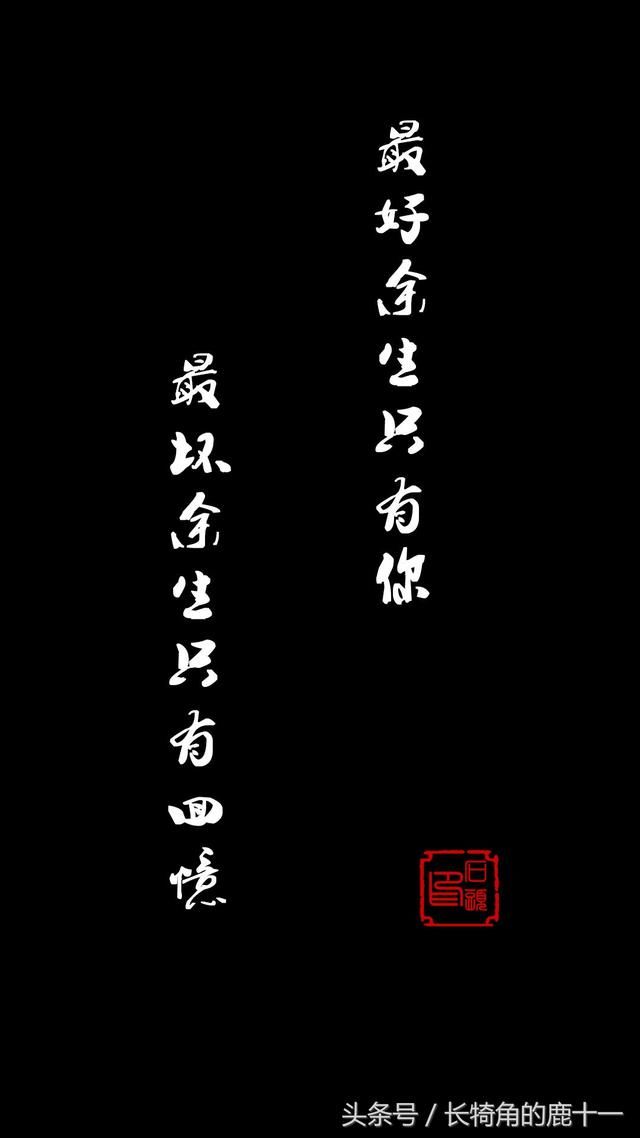 最好余生只有你
最坏余生只有回憶
石頭印
头条号 / 长犄角的鹿十一